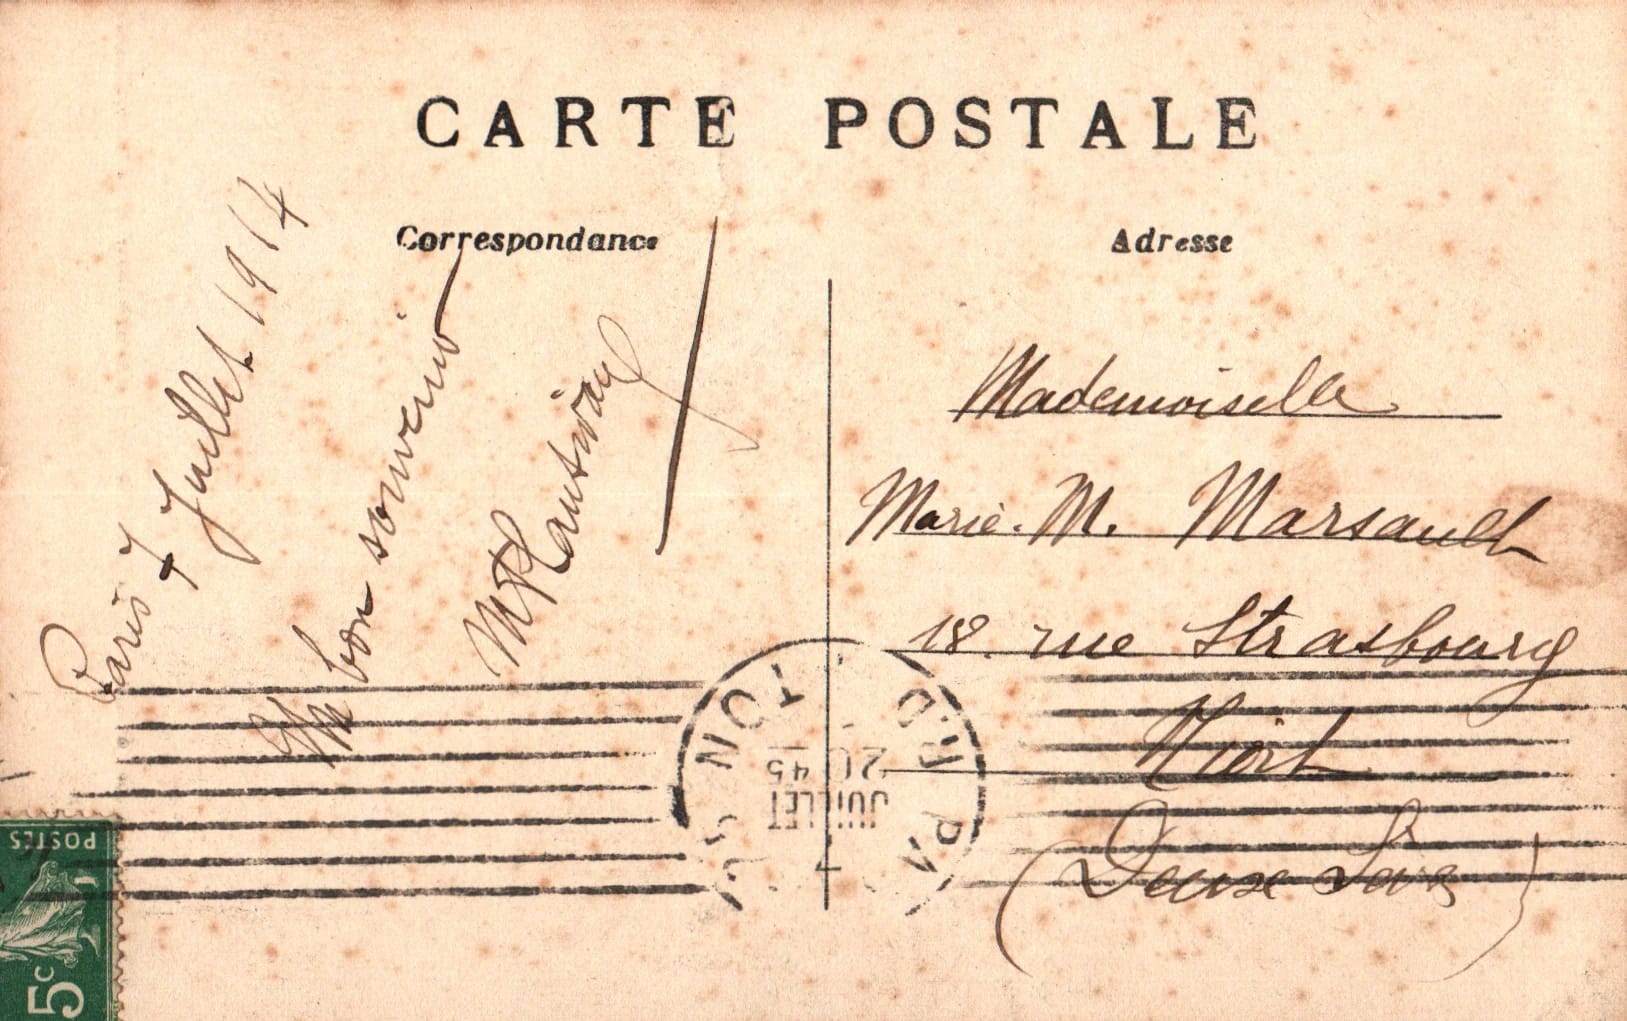 CARTE POSTALE
Correspondance
Adresse
Paris 7 Juillet 1914
Un bon souvenir
Mademoiselle
Marie. M. Marsault
18. rue Strasbourg
Niort
(Deux Sèvres)
20 45
JUILLET
7
POSTES
5c